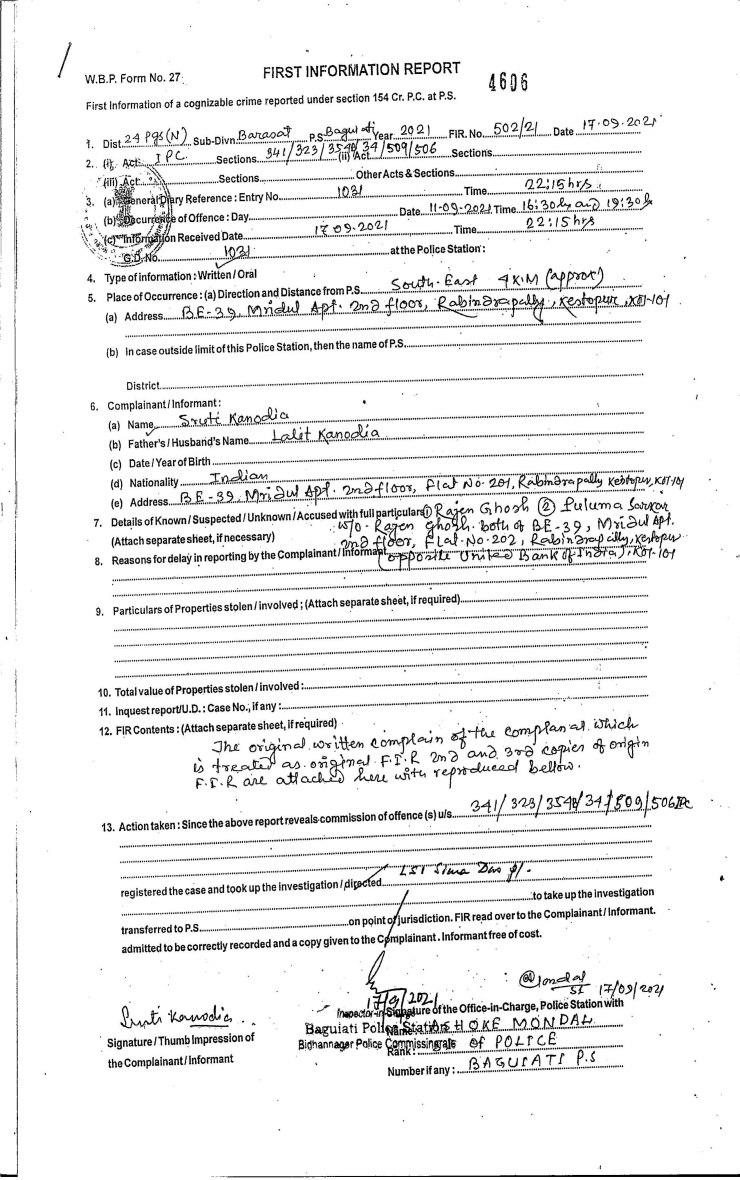 W.B.P. Form No. 27
FIRST INFORMATION REPORT
4606
First Information of a cognizable crime reported under section 154 Cr. P.C. at P.S.
1. Dist. 24 Pgs(N) Sub-Divn. Barasat P.S. Baguiati Year 2021 FIR. No. 502/21 Date 17.09.2021
2. (i) Act IPC Sections 341/323/354B/34/509/506 (ii) Act Sections
(iii) Act Sections Other Acts & Sections
3. (a) General Diary Reference : Entry No. 1031 Time 22:15 hrs
(b) Occurrence of Offence : Day Date 11-09-2021 Time 16:30 hrs and 19:30 h
(c) Information Received Date 17.09.2021 Time 22:15 hrs
G.D. No. 1031 at the Police Station :
4. Type of information : Written / Oral
5. Place of Occurrence : (a) Direction and Distance from P.S. South-East 4 K.M (approx)
(a) Address BE-39, Mridul Apt. 2nd floor, Rabindrapally, Kestopur, Kol-101
(b) In case outside limit of this Police Station, then the name of P.S.
District
6. Complainant / Informant :
(a) Name Sruti Kanodia
(b) Father's / Husband's Name Lalit Kanodia
(c) Date / Year of Birth
(d) Nationality Indian
(e) Address BE-39, Mridul Apt. 2nd floor, Flat No. 201, Rabindrapally Kestopur, Kol-101
7. Details of Known / Suspected / Unknown / Accused with full particulars ① Rajen Ghosh ② Puluma Sarkar
(Attach separate sheet, if necessary) W/O- Rajen Ghosh. both of BE-39, Mridul Apt.
2nd floor, Flat-No-202, Rabindrapally, Kestopur
8. Reasons for delay in reporting by the Complainant / Informant (opposite United Bank of India), Kol-101
9. Particulars of Properties stolen / involved ; (Attach separate sheet, if required)
10. Total value of Properties stolen / involved :
11. Inquest report/U.D. : Case No., if any :
12. FIR Contents : (Attach separate sheet, if required)
The original written complain of the complanat which
is treated as original F.I.R 2nd and 3rd copies of origin
F.I.R are attached here with reproduced bellow.
13. Action taken : Since the above report reveals commission of offence (s) u/s. 341/323/354B/34/509/506 IPC
registered the case and took up the investigation / directed LSI Sima Das
to take up the investigation
transferred to P.S. on point of jurisdiction. FIR read over to the Complainant / Informant.
admitted to be correctly recorded and a copy given to the Complainant. Informant free of cost.
17/9/2021
Mondal SI 17/09/2021
Sruti Kanodia
Signature / Thumb Impression of
the Complainant / Informant
Signature of the Office-in-Charge, Police Station with
Baguiati Police Station
Name: ASHOKE MONDAL
Bidhannagar Police Commissionerate
Rank : SI of POLICE
Number if any : BAGUIATI P.S